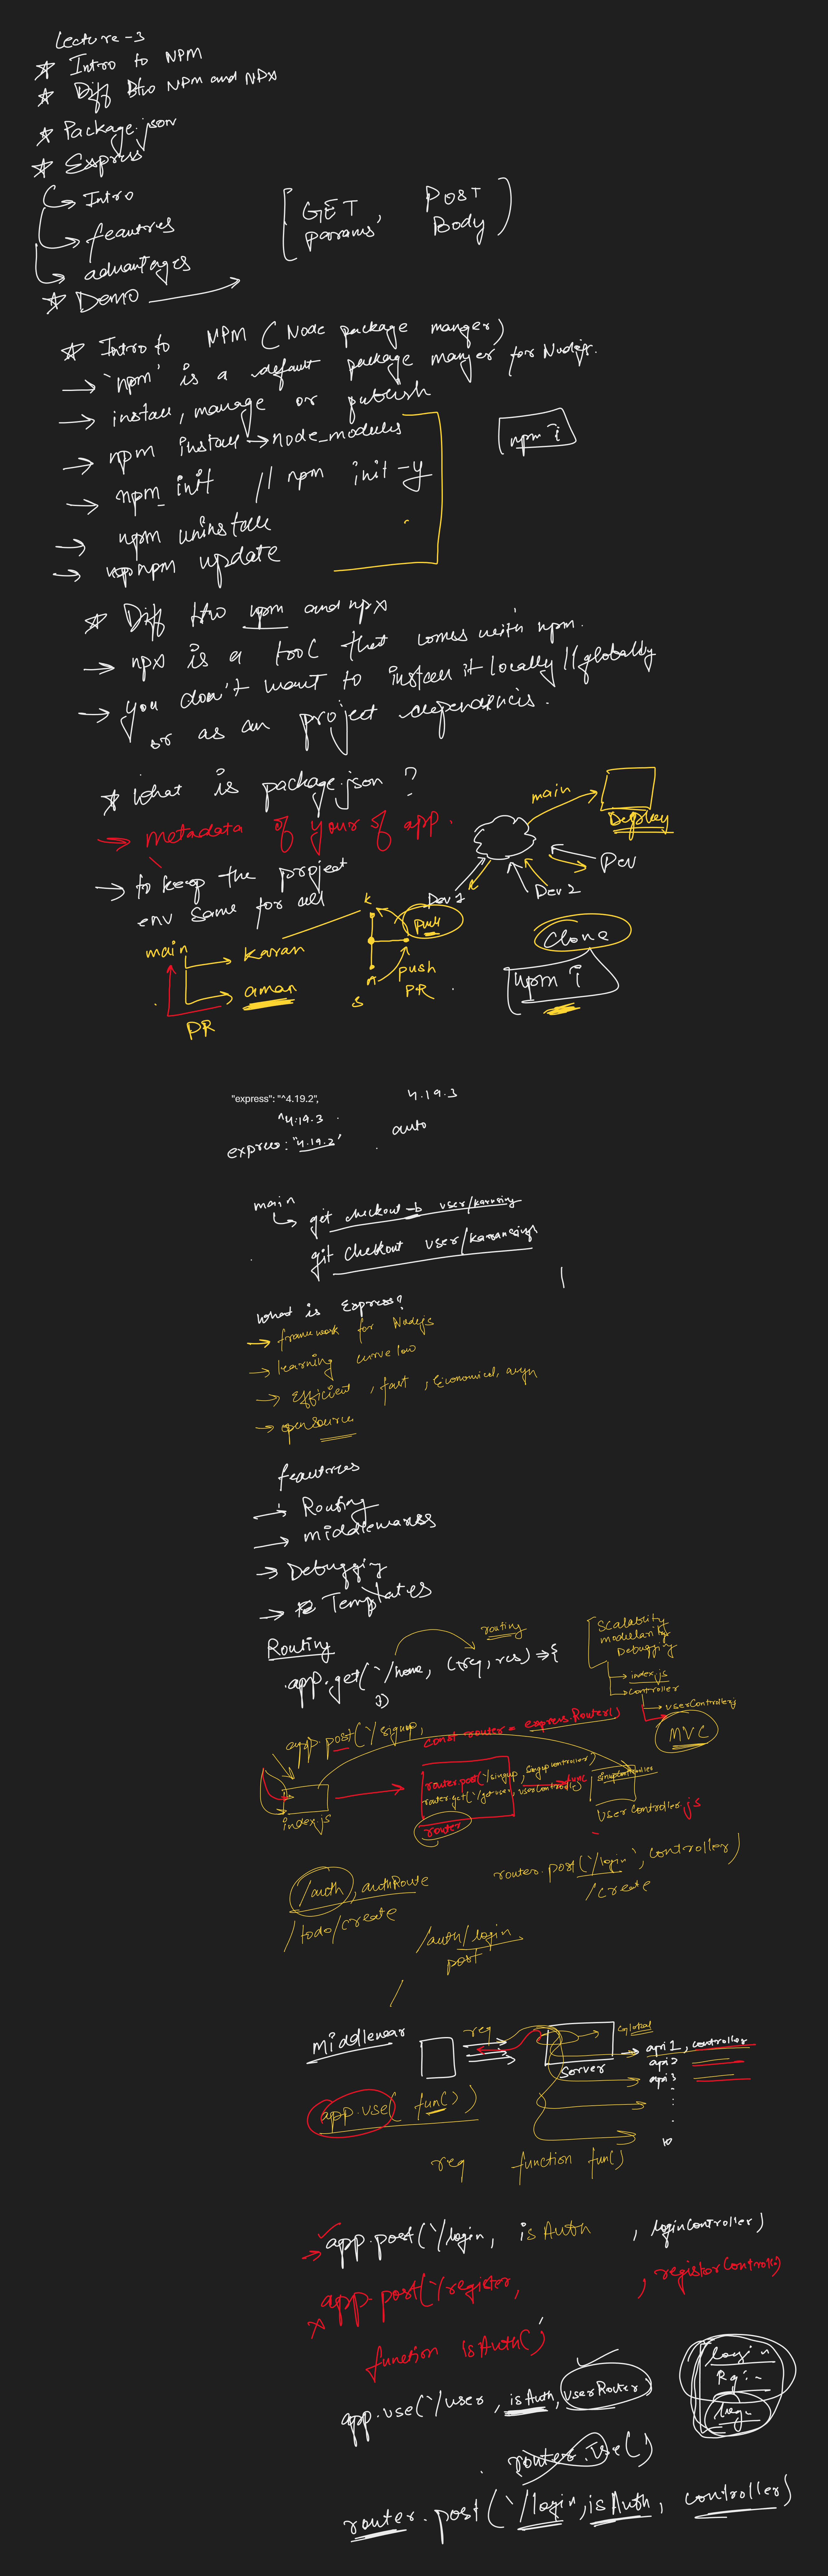 Lecture-3
☆ Intro to NPM
☆ Diff btw NPM and NPX
☆ Package.json
☆ Express
→ Intro
→ feautres
→ advantages
☆ Demo →
GET params, POST Body
☆ Intro to NPM (Node package manger)
→ 'npm' is a default package manger for Nodejs.
→ install, manage or publish
→ npm install → node_modules
npm i
→ npm init // npm init -y
→ npm uninstall
→ npm update
☆ Diff btw npm and npx
→ npx is a tool that comes with npm.
→ you don't want to install it locally // globally
or as an project dependencis.
☆ What is package.json ?
→ metadata of your of app.
→ to keep the project
env same for all
main
Deploy
Dev 1
Dev 2
Dev
main
→ Karan
→ aman
PR
K
Pull
push
PR
S
Clone
npm i
"express": "^4.19.2",
4.19.3
^4.19.3
auto
express: "4.19.2"
main
→ get checkout -b user/karansing
git checkout user/karansingh
What is Express?
→ framework for Nodejs
→ learning curve low
→ Efficient, fast, Economical, asyn
→ opensource
feautres
→ Routing
→ middlewares
→ Debugging
→ Templates
Routing
routing
app.get('/home, (req, res) => {
Scalability
modularity
Debugging
→ index.js
→ controller
→ userController.js
MVC
app.post('/signup,
const router = express.Router()
router.post('/singup, singupcontroller)
router.get('/getuser, userController)
router
func
index.js
singupController
userController.js
/auth, authRoute
/todo/create
router.post('/login', controller)
/create
/auth/login
post
/
Middlewear
req
Server
Global
api 1, controller
api 2
api 3
10
app.use( fun() )
req
function fun()
→ app.post('/login, isAuth , loginController)
x app.post('/register, , registorController)
function isAuth()
app.use('/user, isAuth, userRouter)
login
router.use()
router.post('/login, isAuth, controller)